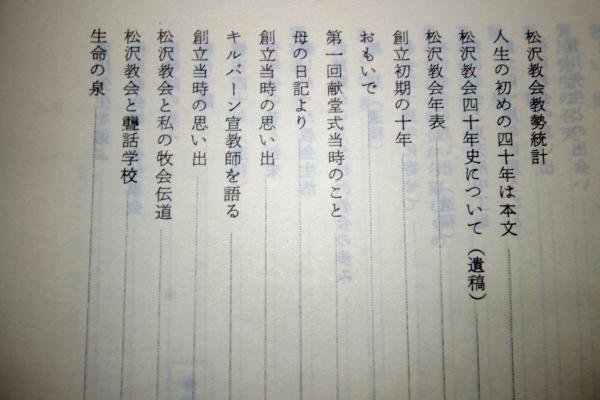 松沢教会教勢統計
人生の初めの四十年は本文
松沢教会四十年史について(遺稿)
松沢教会年表
創立初期の十年
おもいで
第一回献堂式当時のこと
母の日記より
創立当時の思い出
キルバーン宣教師を語る
創立当時の思い出
松沢教会と私の牧会伝道
松沢教会と聾話学校
生命の泉